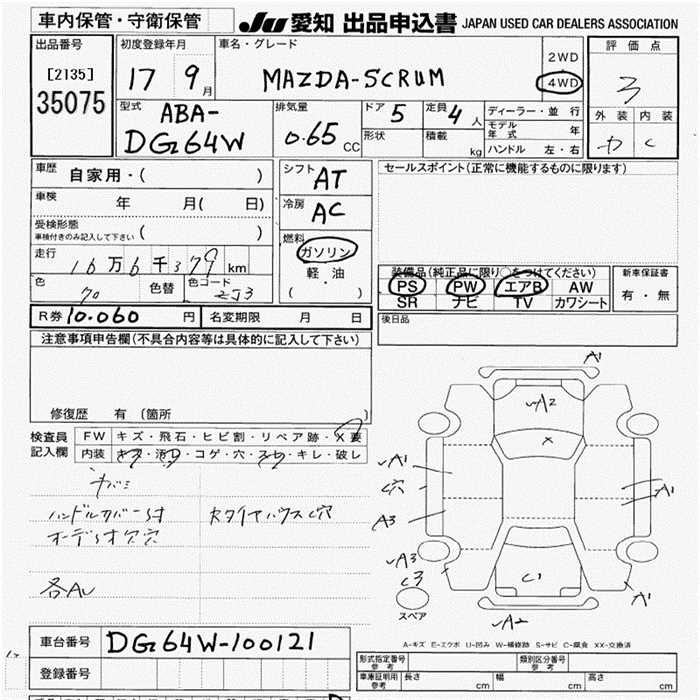 車内保管・守衛保管
JU 愛知 出品申込書 JAPAN USED CAR DEALERS ASSOCIATION
出品番号
[2135]
35075
初度登録年月
17 9月
車名・グレード
MAZDA-SCRUM
2WD
4WD
評価点
3
外装 内装
C
型式
ABA-
DG64W
排気量
0.65 CC
ドア 5
形状
定員 4人
積載 kg
ディーラー・並行
モデル年式 年
ハンドル 左・右
車歴 自家用・( )
車検 年 月( 日)
受検形態
車検付きのみ記入して下さい ( )
走行 16万6千379km
色
色替
色コード ZJ3
シフト AT
冷房 AC
燃料
ガソリン
軽・油
( ・ )
セールスポイント(正常に機能するものに限ります)
装備品(純正品に限り○をつけてください)
PS PW エアB AW
SR ナビ TV カワシート
新車保証書
有・無
R券 10.060 円 名変期限 月 日
後日品
注意事項申告欄(不具合内容等は具体的に記入して下さい)
修復歴 有(箇所 )
検査員記入欄
FW キズ・飛石・ヒビ割・リペア跡・X要
内装 キズ・汚レ・コゲ・穴・スレ・キレ・破レ
ハンドルカバー付
オーディオ欠穴
各AU
A1
A2
X
A1
C穴
A3
A1
A3
C3
C1
A1
A2
スペア
A-キズ E-エクボ U-凹み W-補修跡 S-サビ C-腐食 XX-交換済
車台番号 DG64W-100121
登録番号
形式指定番号 参考
類別区分番号 参考
車庫証明用 参考 長さ cm 幅 cm 高さ cm